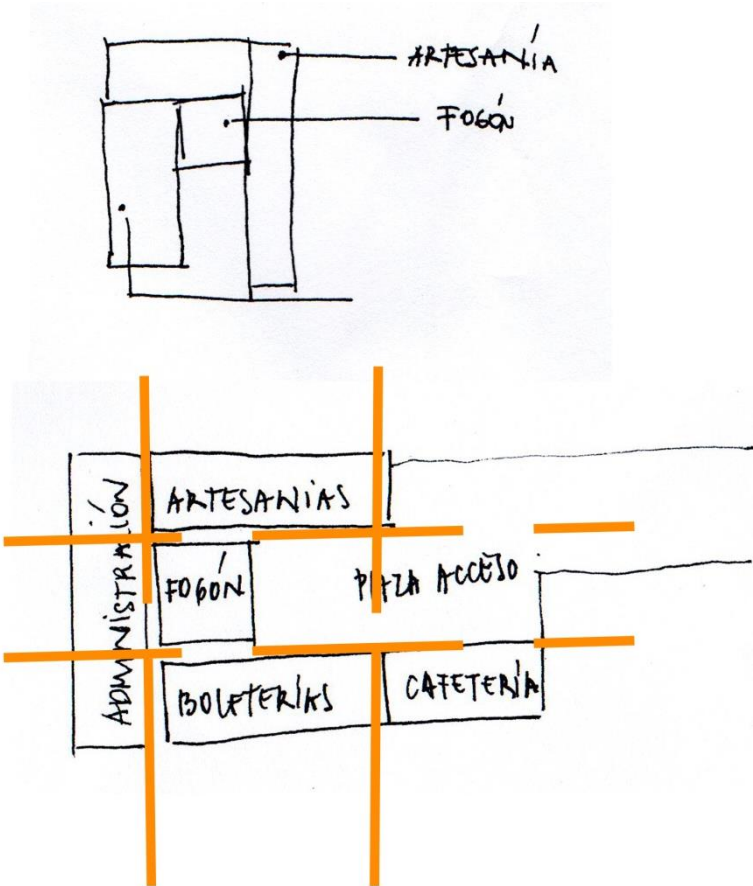 ARTESANÍA
FOGÓN
ADMINISTRACIÓN
ARTESANÍAS
FOGÓN
PLAZA ACCESO
BOLETERÍAS
CAFETERÍA